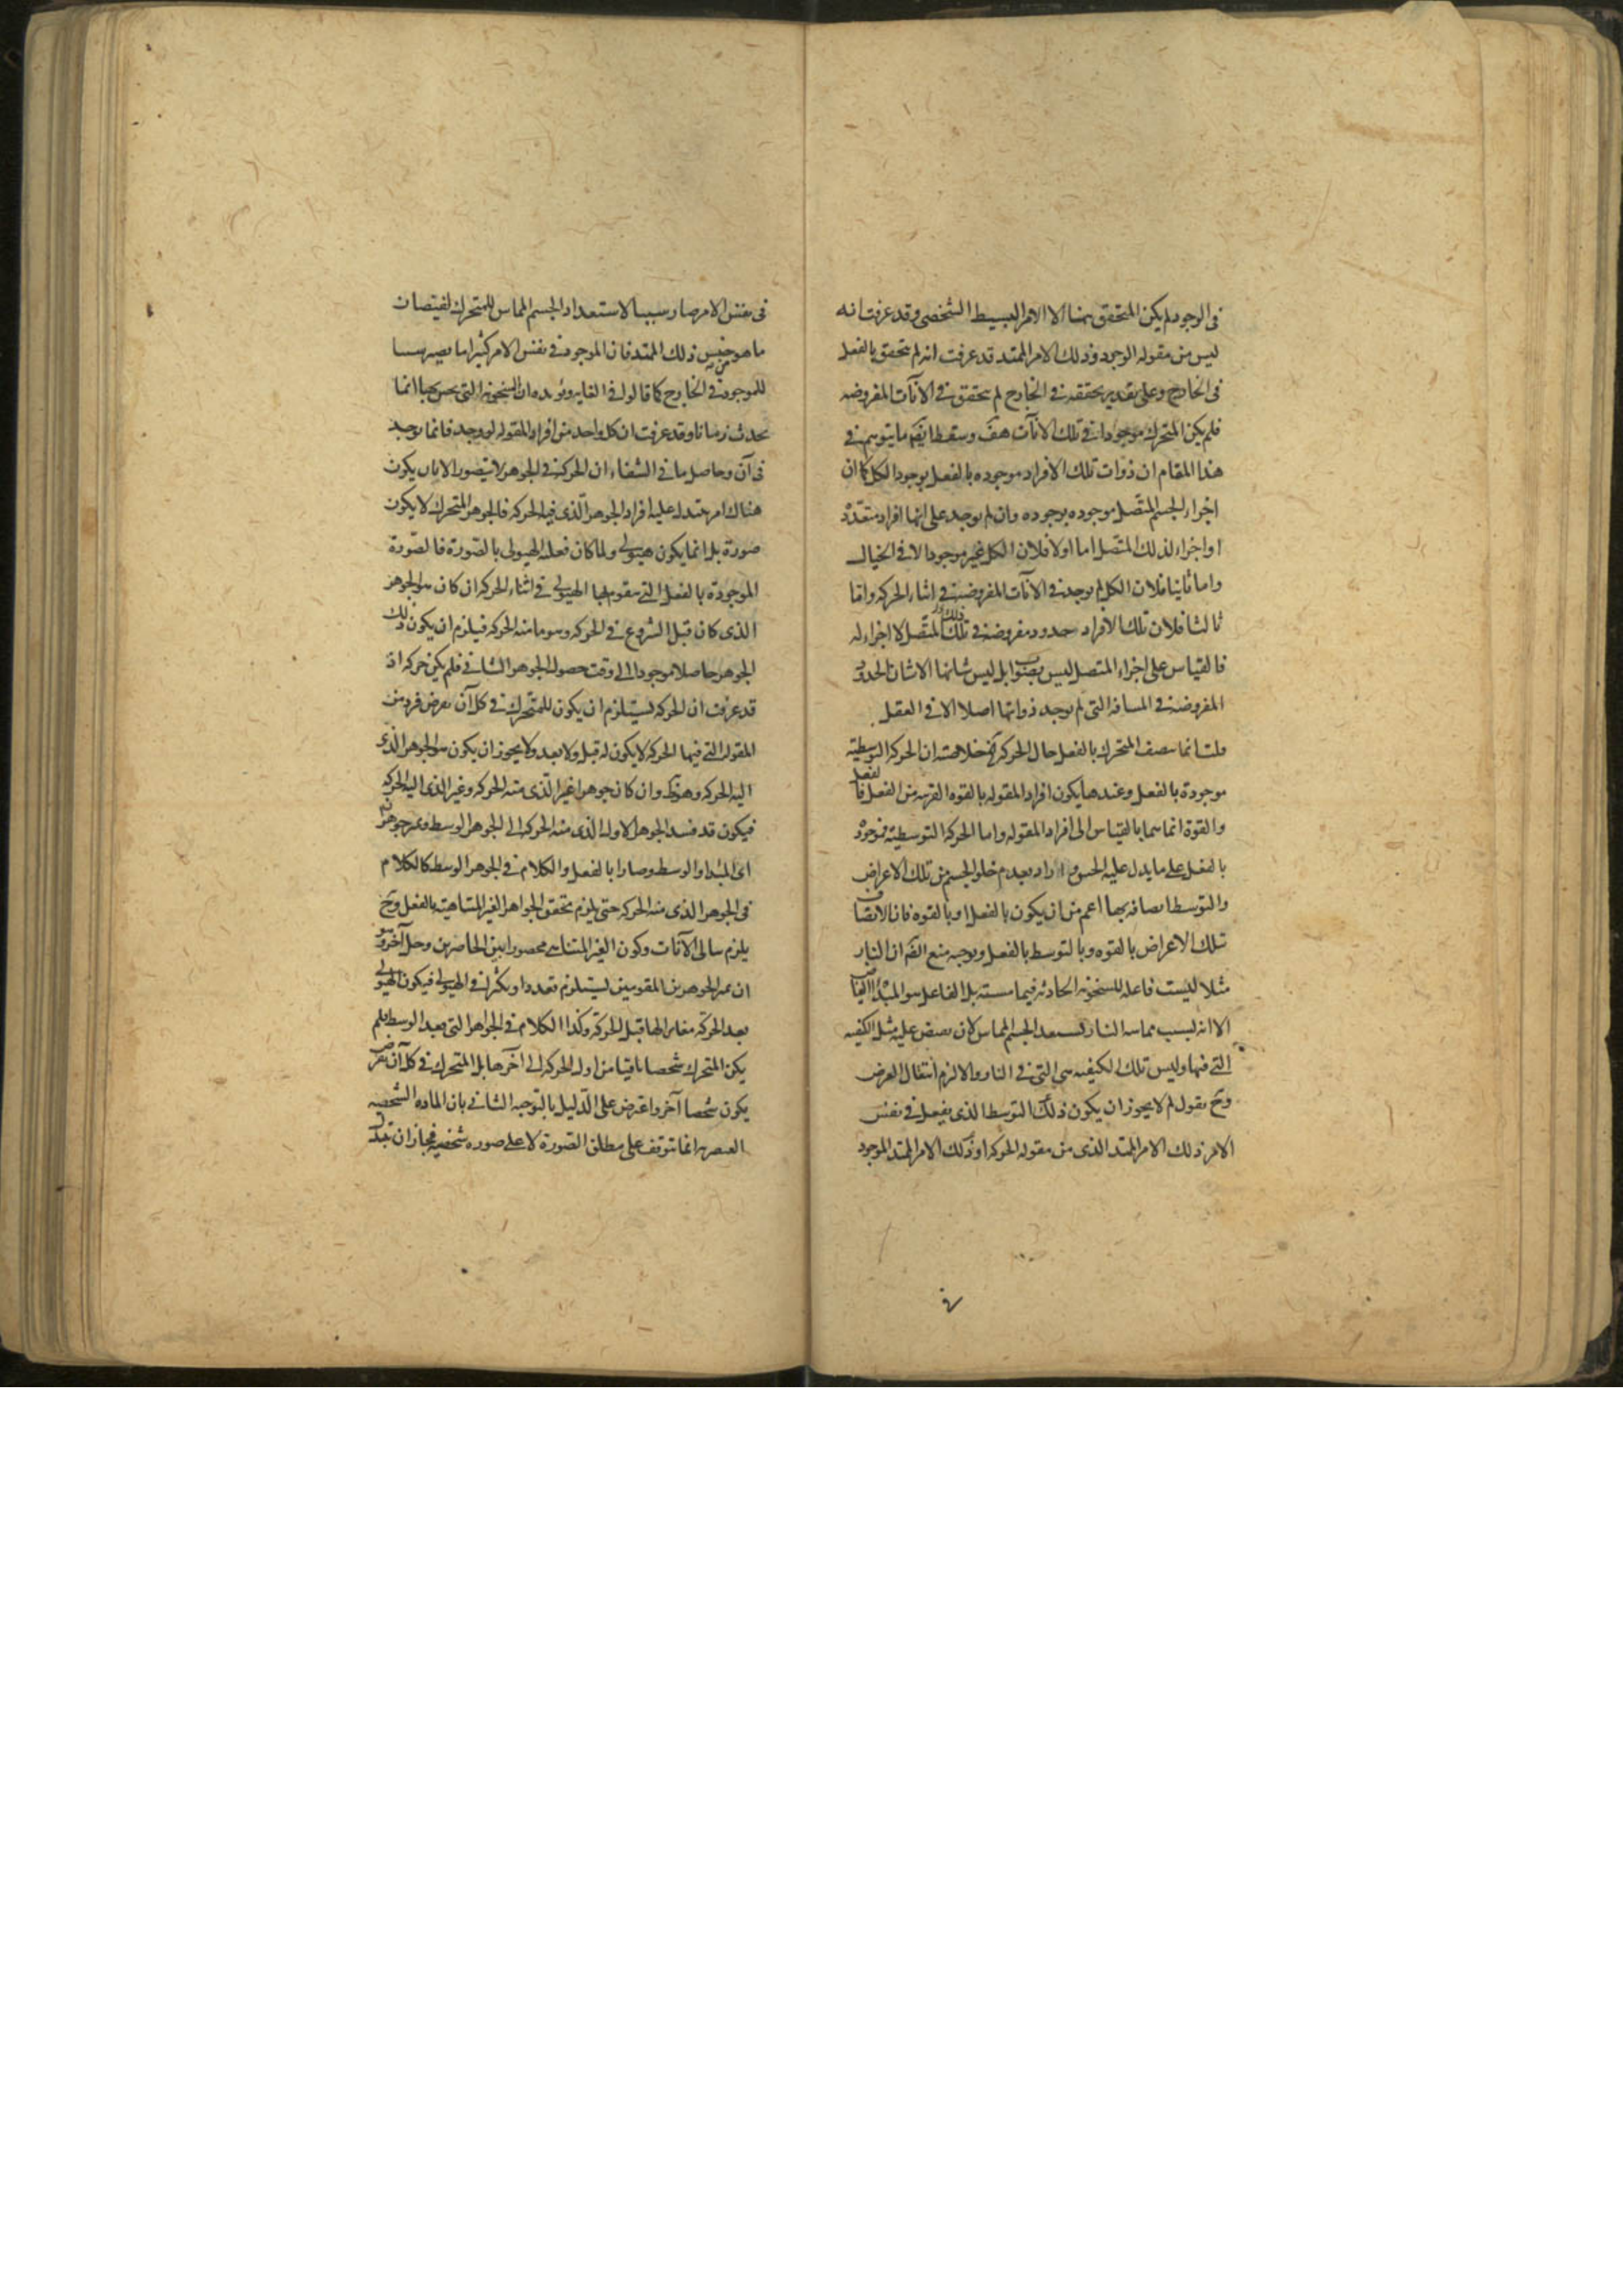 فى الوجود لم يكن المتحقق هنا الا الامر البسيط الشخصى وقد عرفت انه
ليس من مقوله الوجود وذلك الامر الممتد قد عرفت انه لم يتحقق بالفعل
فى الخارج وعلى تقدير تحققه فى الخارج لم يتحقق فى الآنات المفروضه
فلم يكن المتحرك موجودا فى تلك الانآت هف وسقط ايضا ما يتوهم فى
هذا المقام ان ذوات تلك الافراد موجوده بالفعل بوجود الكل كما ان
اجزاء الجسم المتصل موجوده بوجوده وان لم يوجد على انها افراد متعدده
او اجزاء لذلك المتصل اما اولا فلان الكل غير موجود الا فى الخيال
واما ثانيا فلان الكل لم يوجد فى الآنات المفروضة فى اثناء الحركه واما
ثالثا فلان تلك الافراد حدود مفروضة فى ذلك المتصل لا اجزاء له
فالقياس على اجزاء المتصل ليس بصواب بل ليس شانها الا شان الحدود
المفروضة فى المسافه التى لم يوجد ذواتها اصلا الا فى العقل
قلت انما يتصف المتحرك بالفعل حال الحركه خلاصته ان الحركه التوسطيه
موجودة بالفعل وعندها يكون افراد المقوله بالقوه القريبه من الفعل فالفعل
والقوة انما هما بالقياس الى افراد المقوله واما الحركه التوسطية فموجوده
بالفعل على ما يدل عليه الحس و اراد بعدم خلو الجسم من تلك الاعراض
والتوسط اتصافه بها اعم من ان يكون بالفعل او بالقوه فان الاتصاف
تلك الاعراض بالقوه وبالتوسط بالفعل وتوجيه منع ان النار
مثلا ليست فاعله للسخونه الحادثه فيما بل الفاعل هو المبدأ الفياض
الا انه بسبب مماسه النار يستعد الجسم المماس لان يفيض عليه مثل الكيفيه
التى فيها وليس تلك الكيفيه هى التى فى النار والا لزم انتقال العرض
وح نقول لم لا يجوز ان يكون ذلك التوسط الذى يفعل فى نفس
الامر ذلك الامر الممتد الذى من مقوله الحركه او ذلك الامر الممتد الموجود
فى نفس الامر صار سببا لاستعداد الجسم المماس للمتحرك لفيضان
ما هو من جنس ذلك الممتد فان الموجود فى نفس الامر كثيرا ما يصير سببا
للموجود فى الخارج كما قالوا فى الغايه ويؤيده ان السخونه التى يحس بها انما
تحدث زمانا وقد عرفت ان كل واحد من افراد المقوله لو وجد فانما يوجد
فى آن وحاصل ما فى الشفاء ان الحركة فى الجوهر لا يتصور الا بان يكون
هناك امر يتبدل عليه افراد الجوهر الذى فيه الحركه فالجوهر المتحرك لا يكون
صورة بل انما يكون هيولى ولما كان فعله الهيولى بالصورة فالصورة
الموجودة بالفعل التى يتقوم بها الهيولى فى اثناء الحركه ان كان هو الجوهر
الذى كان قبل الشروع فى الحركه وهو ما منه الحركه فيلزم ان يكون ذلك
الجوهر حاصلا موجودا الى وقت حصول الجوهر الثانى فلم يكن حركه اذ
قد عرفت ان الحركه تستلزم ان يكون للمتحرك فى كل آن يفرض فرد من
المقوله التى فيها الحركه لا يكون له قبل ولا بعد ولا يجوز ان يكون هو الجوهر الذى
اليه الحركه وهو ظ وان كان جوهرا غير الذى منه الحركه وغير الذى اليه الحركه
فيكون قد فسد الجوهر الاول الذى منه الحركه الى الجوهر الوسط
اى المبدا والوسط وصارا بالفعل والكلام فى الجوهر الوسط كالكلام
فى الجوهر الذى منه الحركه حتى يلزم تحقق الجواهر الغير المتناهية بالفعل وح
يلزم تتالى الآنات وكون الغير المتناهى محصورا بين الحاصرين وخلل آخر وهو
ان الجوهرين المقومين يستلزم تعددا وتكثرا فى الهيولى فيكون الهيولى
بعد الحركه مغايرا لها قبل الحركه وكذا الكلام فى الجواهر التى بعد الوسط فلم
يكن المتحرك شخصا باقيا من اول الحركه الى آخرها بل المتحرك فى كل آن يفرض
يكون شخصا آخر واعترض على الدليل بالتوجيه الثانى بان الماده الشخصيه
العنصريه انما تتوقف على مطلق الصورة لا على صوره شخصيه فجاز ان تتبدل